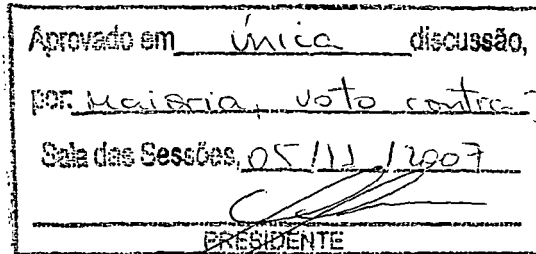 Aprovado em única discussão,
por: Maioria, voto contra
Sala das Sessões, 05/11/2007
PRESIDENTE